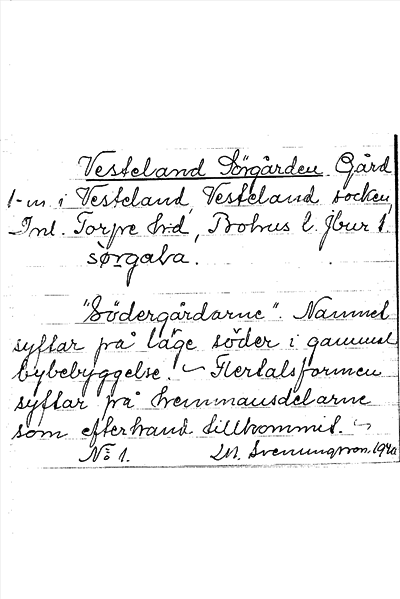 Vesteland Sörgården. Gård
1-m i Vesteland, Vesteland socken,
Inl. Torpe hd, Bohus l. Jbur 1
sørgaɫa.
"Södergårdarne". Namnet
syftar på läge söder i gammal
bybebyggelse. ~ Flertalsformen
syftar på hemmansdelarne
som efterhand tillkommit. ~
No 1. M. Svenungsson. 1940